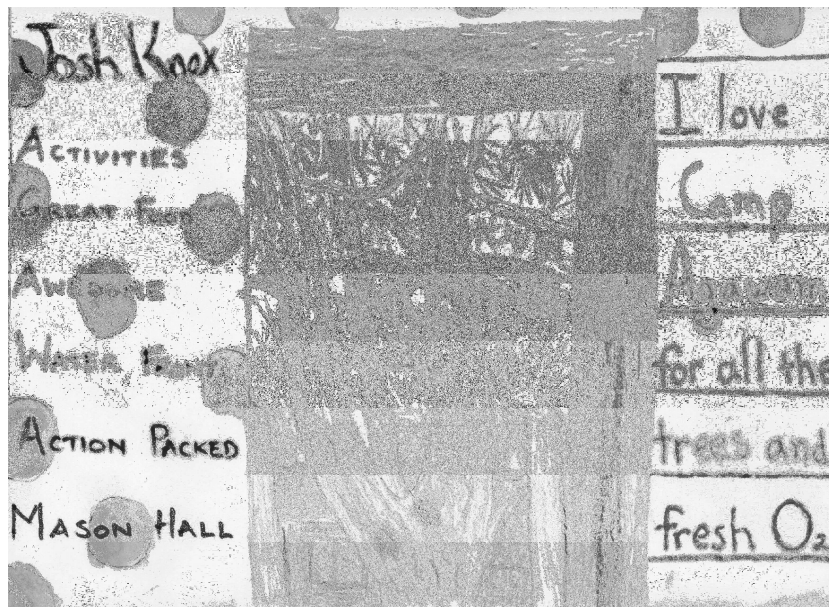 Josh Knox
ACTIVITIES
GREAT FOOD
AWESOME
WATER FRONT
ACTION PACKED
MASON HALL
I love
Camp
for all the
trees and
fresh O₂